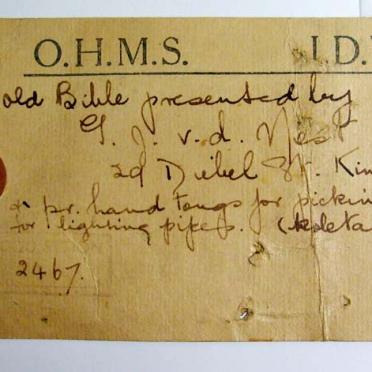 O.H.M.S. I.D.
old Bible presented by
G. J. v. d. Nest
2d Diebel St. Kim
pr. hand tongs for pickin
for lighting pipes. (koleta
2467.